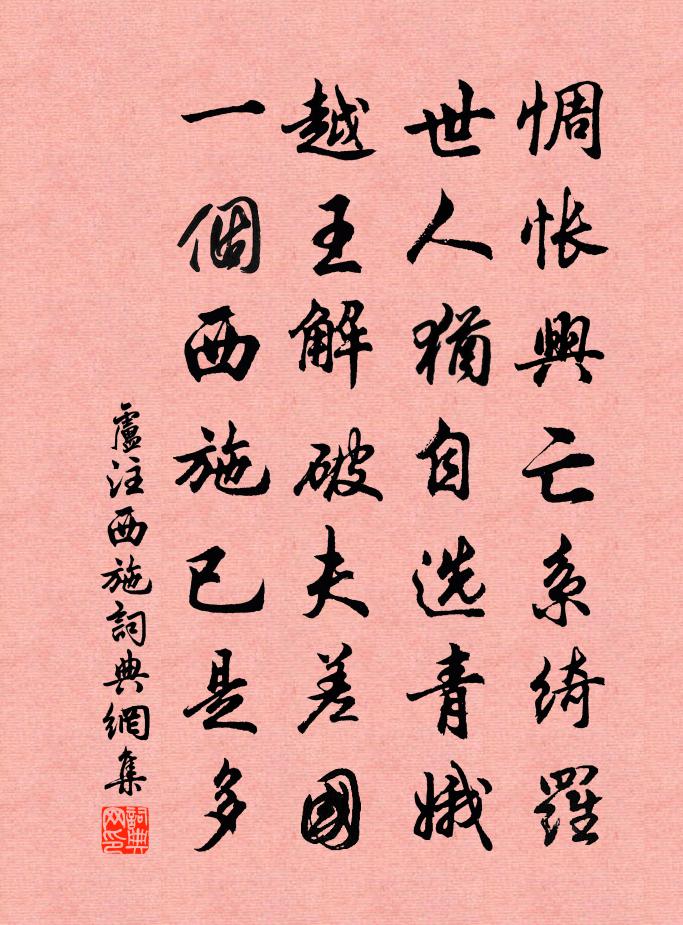 惆怅興亡系綺羅
世人猶自选青娥
越王解破夫差國
一個西施已是多
盧注西施詞典網集
詞典
网印